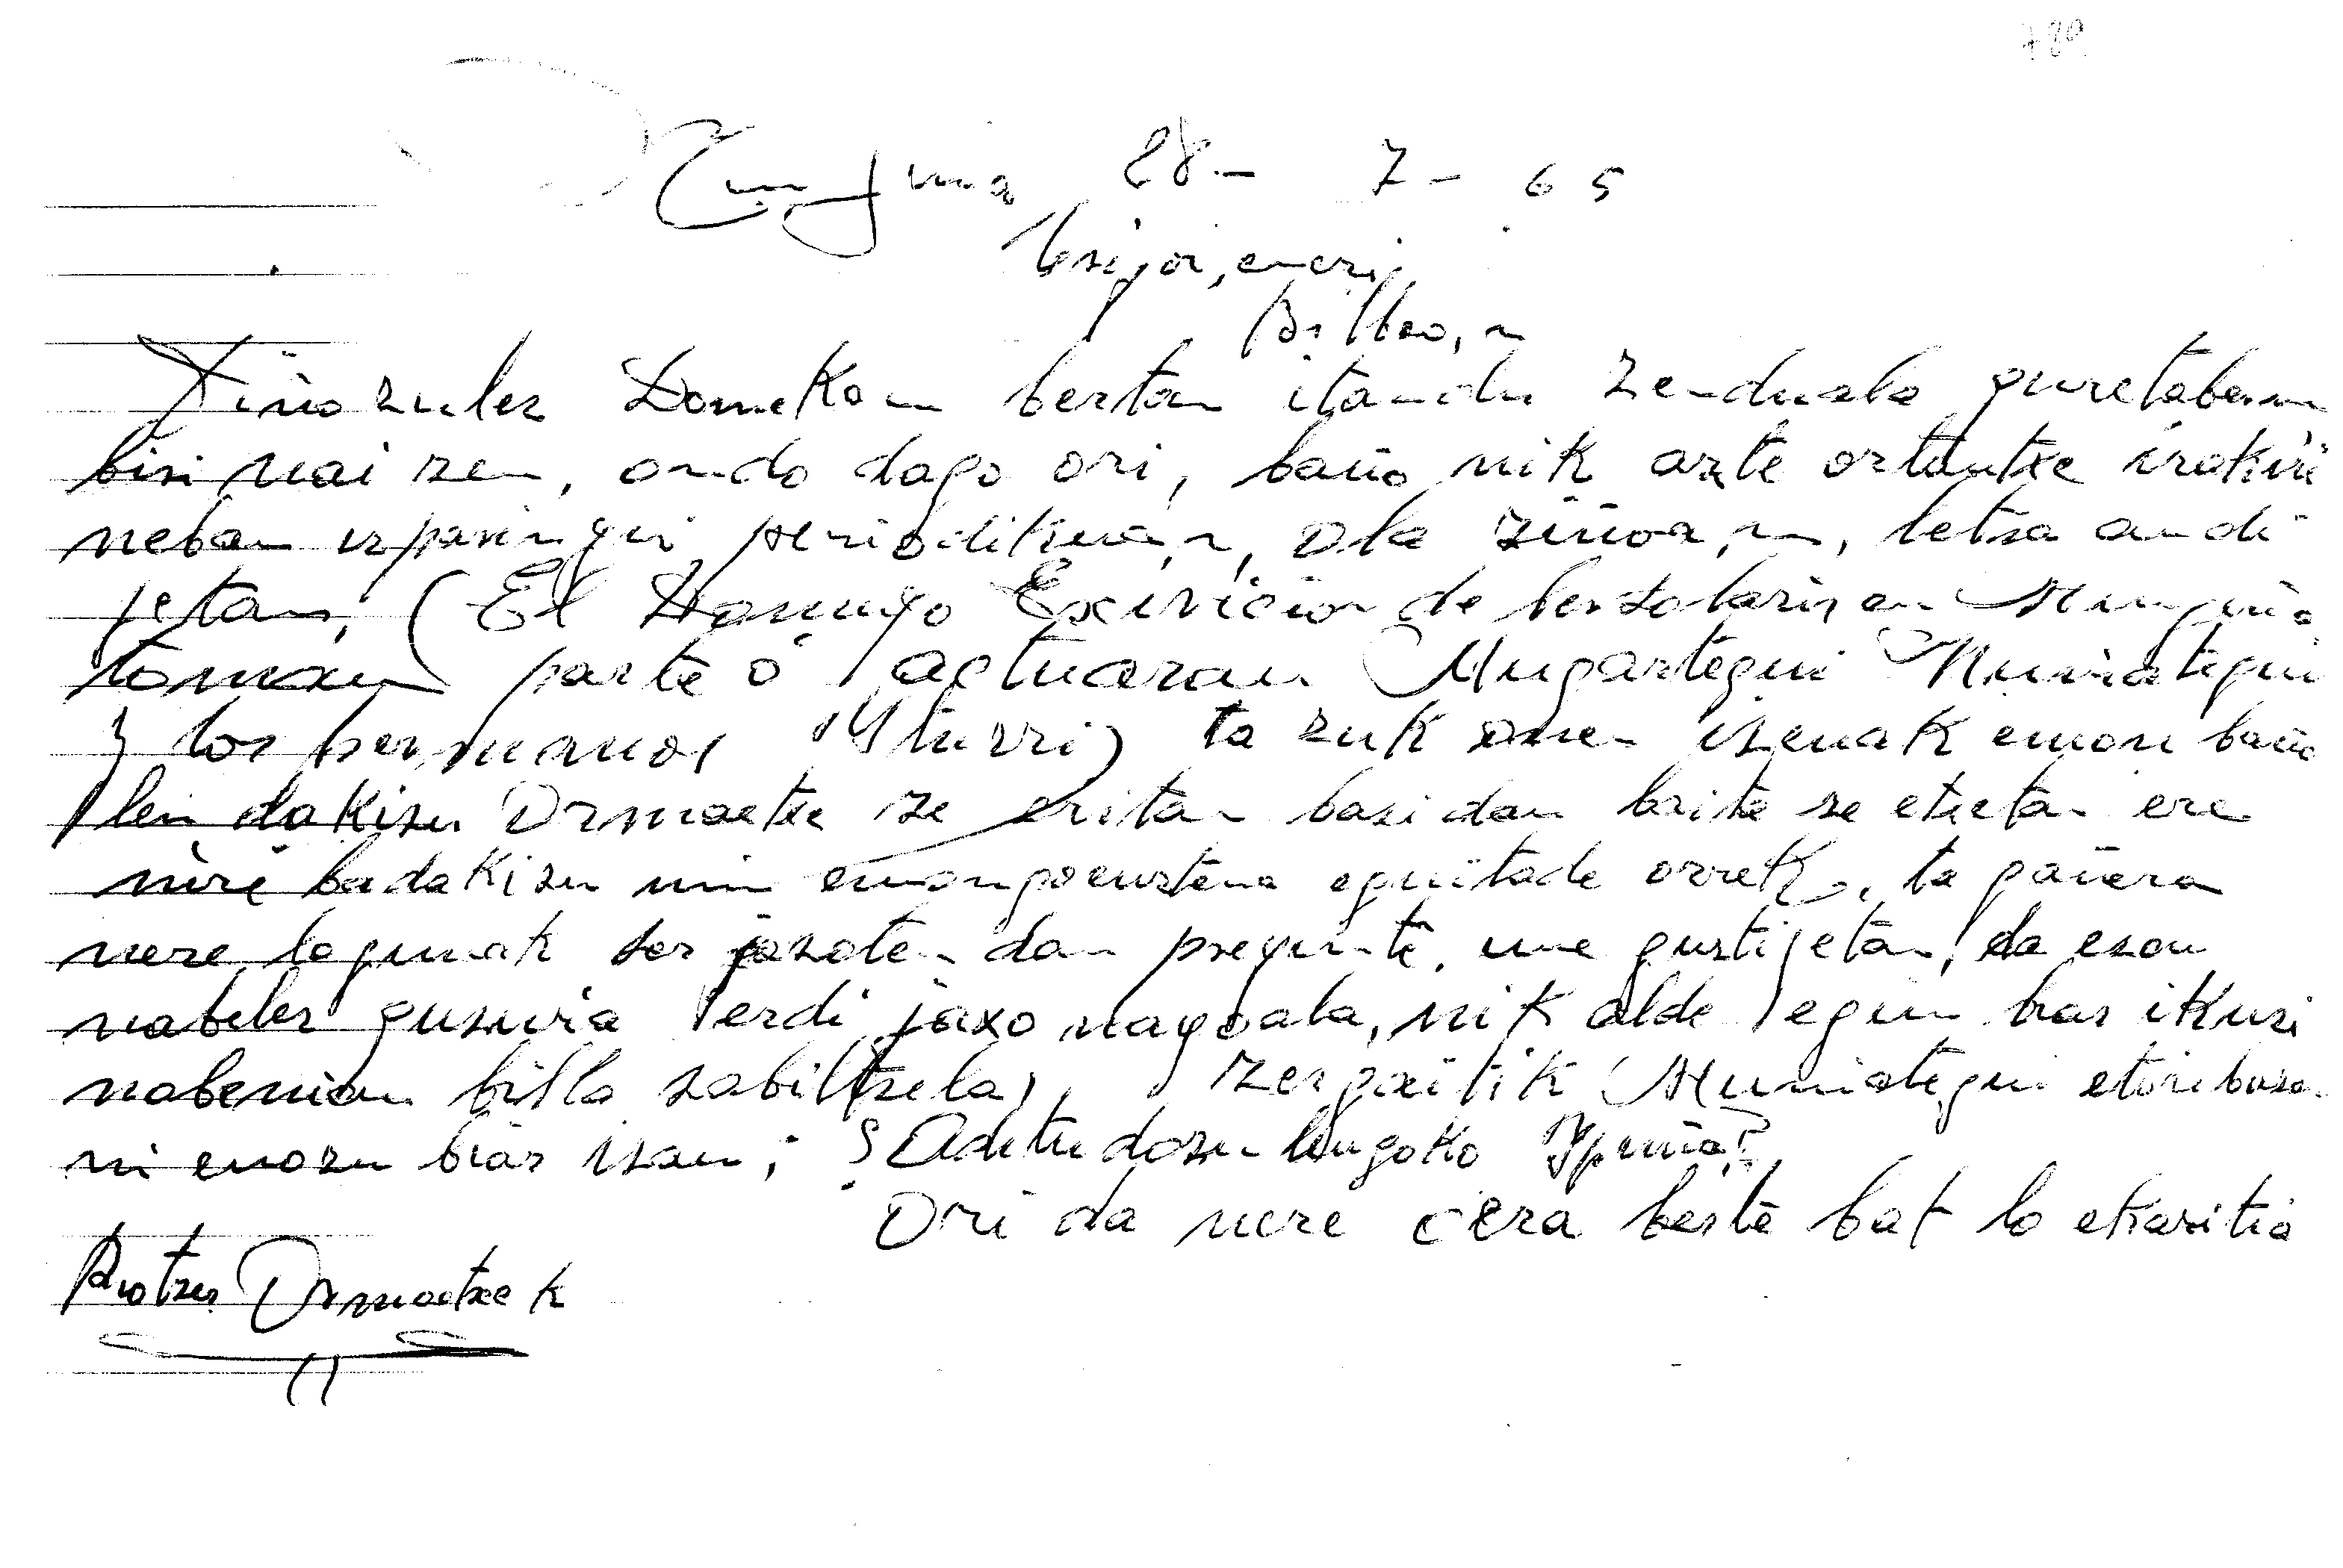 789
Mungia 28 - 7 - 65
Bilbao,n
Domekan bertan itandu zenduala guretabam
bizi naizen, ondo dago ori, baño nik arte ortantxe irakiri
neban izparingui periodikuan, ola ziñoa,n, letra andi
jetan, (El Domingo Exivicion de bersolaris en Munguia
tomaran parte o actuaran Mugartegui Muniategui
y los hermanos Yturri) ta zuk onen izenak emon baño
len dakizu Ormaetxe ze eritan bazidan baita ze etxetan ere
niri badakizu min emongoeustena eguitade orrek, ta gañera
nere lagunak zer jazoten dan pregunte, une guztijetan, da esan
nabiler gusuria erdi jaxo nagoala, nik alde egin biar ikusi
nabenian billa zabiltzela, zergaitik Muniategui etori baza
ni enozu biar izan, ¿Aditudozu lengoko
Ori da nere cera beste bat lo ekaritia
Ormaetxe k